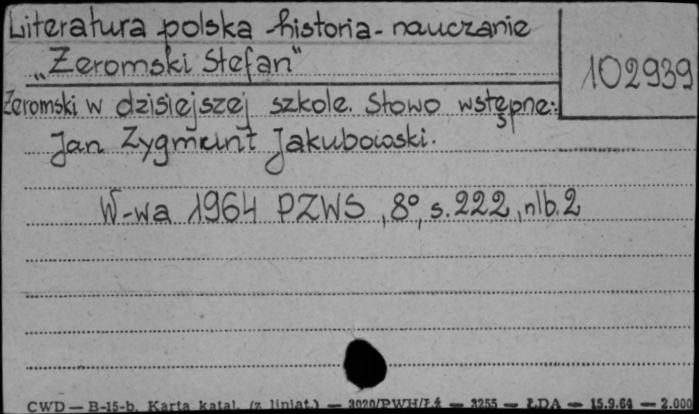 Literatura polska - historia - nauczanie
"Żeromski Stefan"
102939
Żeromski w dzisiejszej szkole. Słowo wstępne:
Jan Zygmunt Jakubowski.
W-wa 1964 PZWS, 8°, s. 222, nlb. 2
CWD — B-15-b. Karta katal. (z liniat.) — 3020/PWH/Łź — 3255 — ŁDA — 15.9.64 — 2.000